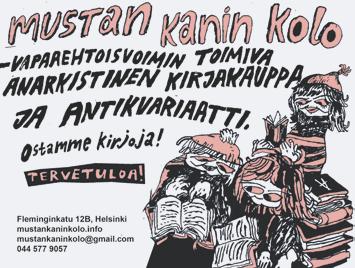 MUSTAN KANIN KOLO
-VAPAAEHTOISVOIMIN TOIMIVA
ANARKISTINEN KIRJAKAUPPA
JA ANTIKVARIAATTI.
Ostamme kirjoja!
TERVETULOA!
Fleminginkatu 12B, Helsinki
mustankaninkolo.info
mustankaninkolo@gmail.com
044 577 9057